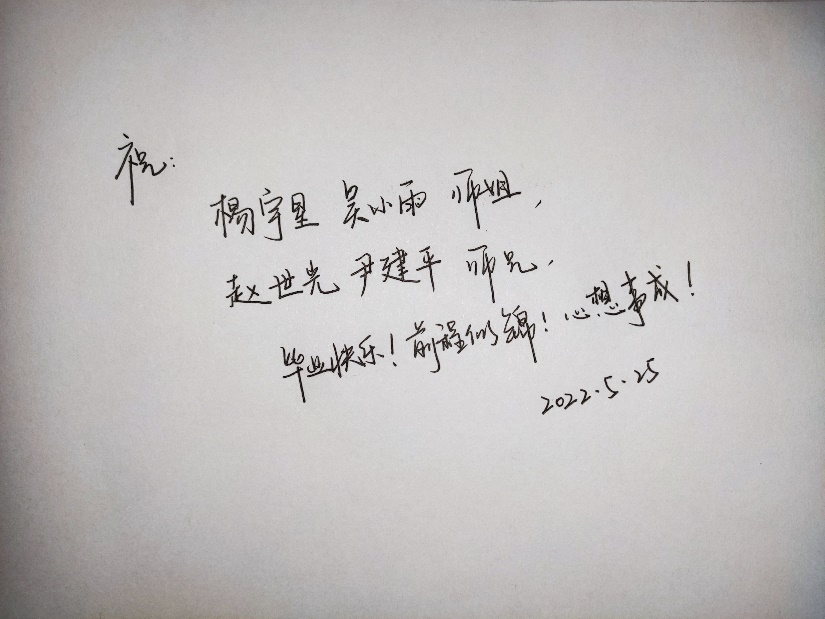 祝：
杨宇星 吴小雨 师姐，
赵世光 尹建平 师兄，
毕业快乐！前程似锦！心想事成！
2022.5.25